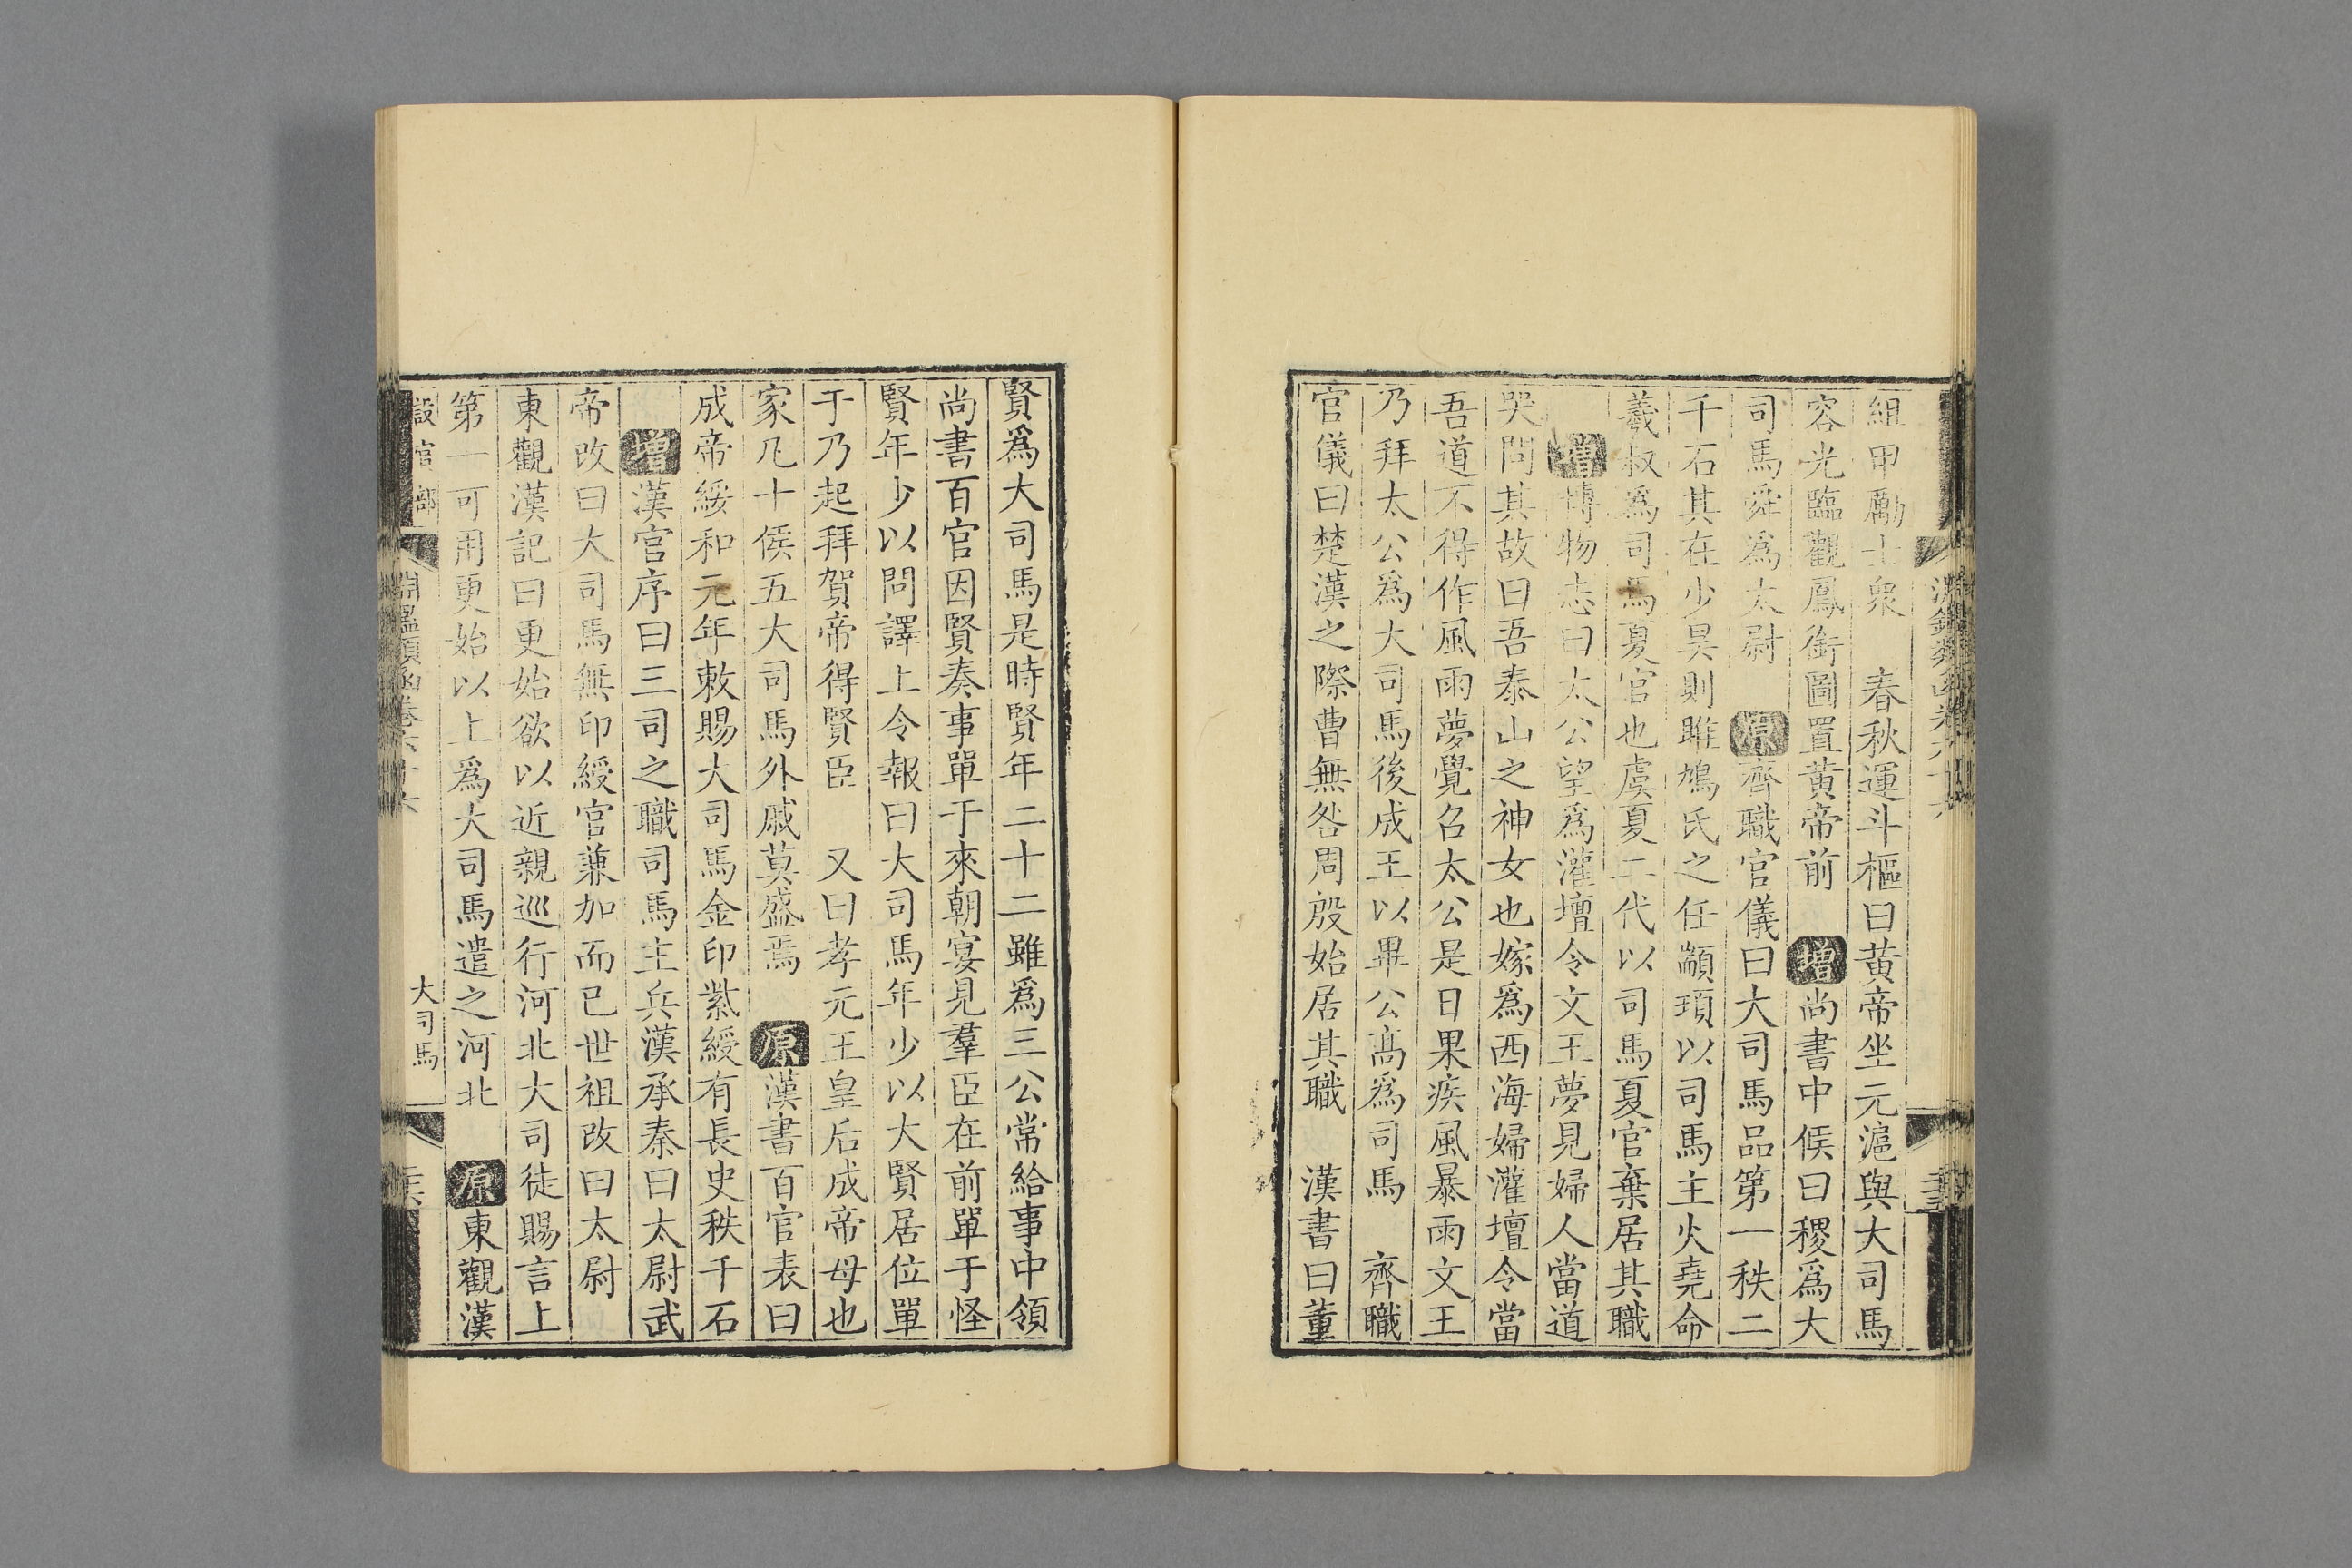 組甲勵士衆　春秋運斗樞曰黃帝坐元滬與大司馬
容光臨觀鳳銜圖置黃帝前　增尚書中候曰稷爲大
司馬舜爲太尉　原齊職官儀曰大司馬品第一秩二
千石其在少昊則雎鳩氏之任顓頊以司馬主火堯命
羲叔爲司馬夏官也虞夏二代以司馬夏官棄居其職
增博物志曰太公望爲灌壇令文王夢見婦人當道
哭問其故曰吾泰山之神女也嫁爲西海婦灌壇令當
吾道不得作風雨夢覺召太公是日果疾風暴雨文王
乃拜太公爲大司馬後成王以畢公高爲司馬　齊職
官儀曰楚漢之際曹無咎周殷始居其職　漢書曰董
賢爲大司馬是時賢年二十二雖爲三公常給事中領
尚書百官因賢奏事單于來朝宴見羣臣在前單于怪
賢年少以問譯上令報曰大司馬年少以大賢居位單
于乃起拜賀帝得賢臣　又曰孝元王皇后成帝母也
家凡十侯五大司馬外戚莫盛焉　原漢書百官表曰
成帝綏和元年敕賜大司馬金印紫綬有長史秩千石
增漢官序曰三司之職司馬主兵漢承秦曰太尉武
帝改曰大司馬無印綬官兼加而已世祖改曰太尉
東觀漢記曰更始欲以近親巡行河北大司徒賜言上
第一可用更始以上爲大司馬遣之河北　原東觀漢
設官部　淵鑑類函卷六十六　大司馬